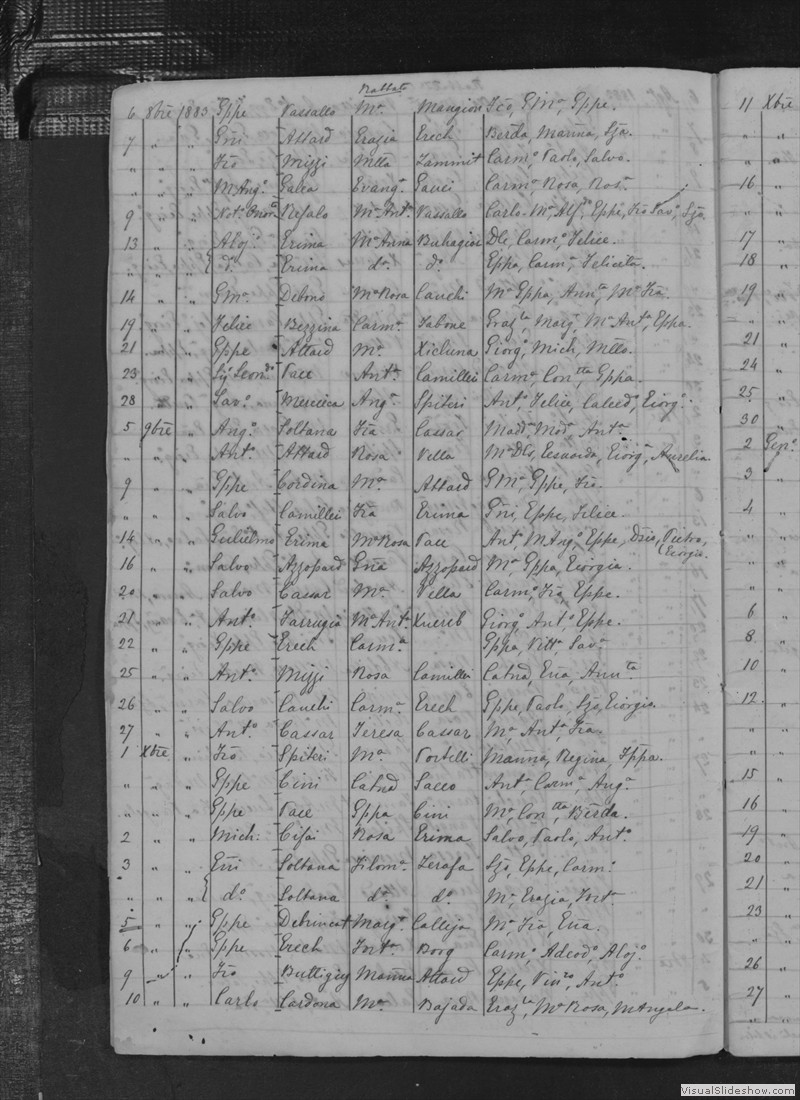 Rabbato
6 8bre 1883 Gppe Vassallo Ma Mangion Fco, GMa, Gppe.
7 " " Gñi Attard Grazia Grech Berda, Marina, Sjo.
" " " Fro Mizzi Mtta Zammit Carmo Paolo, Salvo.
" " " M Ango Galea Evanga Gauci Carma Rosa, Rosa
9 " " Noto Refalo Ma Anta Vassallo Carlo Ma Alf, Gppe, Fro Savo, Sjo
13 " " Aloj Grima Ma Anna Buhagiar Dle, Carmo Felice.
" " " do Grima da do Gppa, Carma Felicita.
14 " " GMa Debono Ma Rosa Cauchi Ma Gppa, Annta Ma Fra.
19 " " Felice Bezzina Carma Tabone Grazla, Marga Ma Anta, Gppa.
21 " " Gppe Attard Ma Xicluna Giorgo, Mich, Mtteo.
23 " " Leonda Pace Anta Camilleri Carma, Contta, Gppa.
28 " " Savo Mercieca Anga Spiteri Anto, Felice, Calcedo, Giorgo
5 9bre " Ango Soltana Fra Cassar Madd, Mada, Anta
" " " Anto Attard Rosa Vella Ma Dls, Giorga, Aurelia
9 " " Gppe Cordina Ma Attard GMa, Gppe, Fro.
" " " Salvo Camilleri Fra Grima Gñi, Gppe, Felice.
14 " " Guglielmo Grima Ma Rosa Pace Anto, M Ango, Gppe, Dzio, Pietro, Giorgio.
16 " " Salvo Azzopard Gña Azzopard Ma Gppa, Giorgia.
20 " " Salvo Cassar Ma Vella Carmo, Fro, Gppe.
21 " " Anto Farrugia Ma Anta Xuereb Giorgo Anto Gppe.
22 " " Gppe Grech Carma Gppa, Vitta Sava
25 " " Anto Mizzi Rosa Camilleri Catna, Gña, Annta
26 " " Salvo Cauchi Carma Grech Gppe, Paolo, Sjo, Giorgio
27 " " Anto Cassar Teresa Cassar Ma, Anta, Fra.
1 Xbre " Fro Spiteri Ma Portelli Marina, Regina, Gppa.
" " " Gppe Cini Catna Sacco Anta, Carma, Anga
" " " Gppe Pace Gppa Cini Ma, Contta, Berda.
2 " " Mich: Cefai Rosa Grima Salvo, Paolo, Anto
3 " " Gñi Soltana Filoma Zerafa Sjo, Gppe, Carmo
" " " do Soltana da do Ma, Grazia, Forta
5 " " Gppe Debrincat Marga Calleja Ma, Fra, Gña.
6 " " Gppe Grech Forta Borg Carmo, Adeodo, Alojo.
9 " " Fro Buttigieg Marina Attard Gppe, Vinzo, Anto
10 " " Carlo Cardona Ma Bajada Grazla, Ma Rosa, M Angela.
11 Xbre
" "
" "
16 "
" "
17 "
18 "
19 "
" "
21 "
24 "
25 "
30 "
2 Geno
3 "
4 "
" "
" "
" "
6 "
8 "
10 "
12 "
" "
" "
15 "
16 "
19 "
20 "
21 "
23 "
" "
26 "
27 "
" "
VisualSlideshow.com